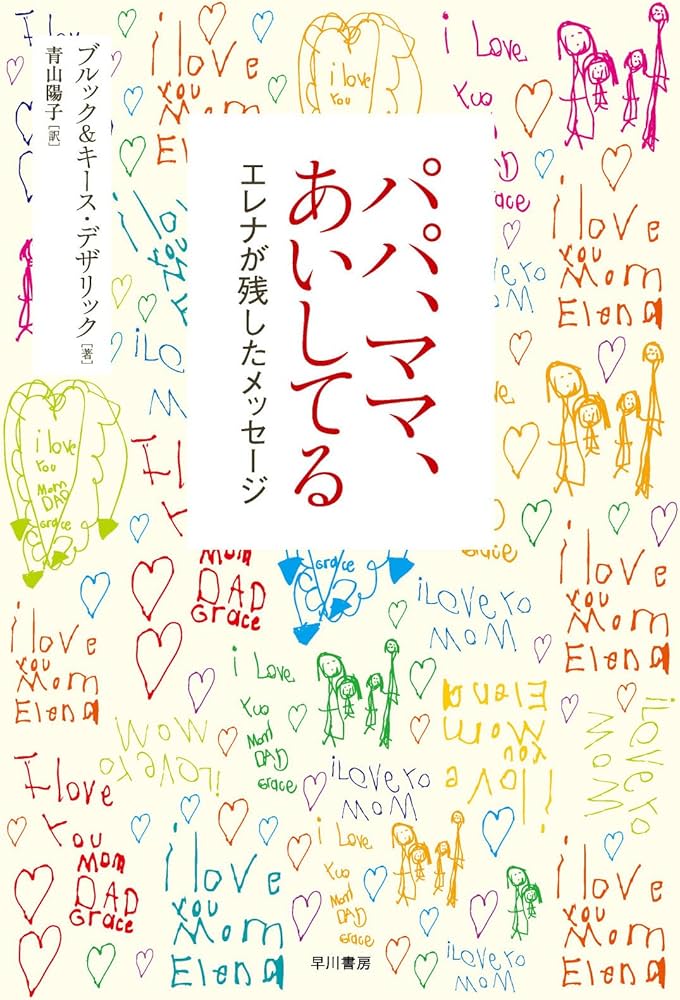 パパ、ママ、
あいしてる
エレナが残したメッセージ
ブルック&キース・デザリック[著]
青山陽子[訳]
i love
You
i Love
Yuo
Grace
i love
You
Mom
Elena
i love
You
Mom
E
iLove
i love
You
Mom
DAD
Grace
Mom
DAD
Grace
Grace
iLOVe Yo
MOM
i love
You
Mom
Elena
i love
You
Mom
Elena
i Love
Yuo
Mom
DAD
Grace
i love
You
Mom
Elena
iLOVe Yo
MOM
iLOVe Yo
MOM
iLOVe Yo
MOM
I love
You
Mom
DAD
Grace
i love
You
Mom
Elena
i Love
Yuo
Mom
DAD
Grace
iLOVe Yo
MOM
i love
You
Mom
Elena
早川書房